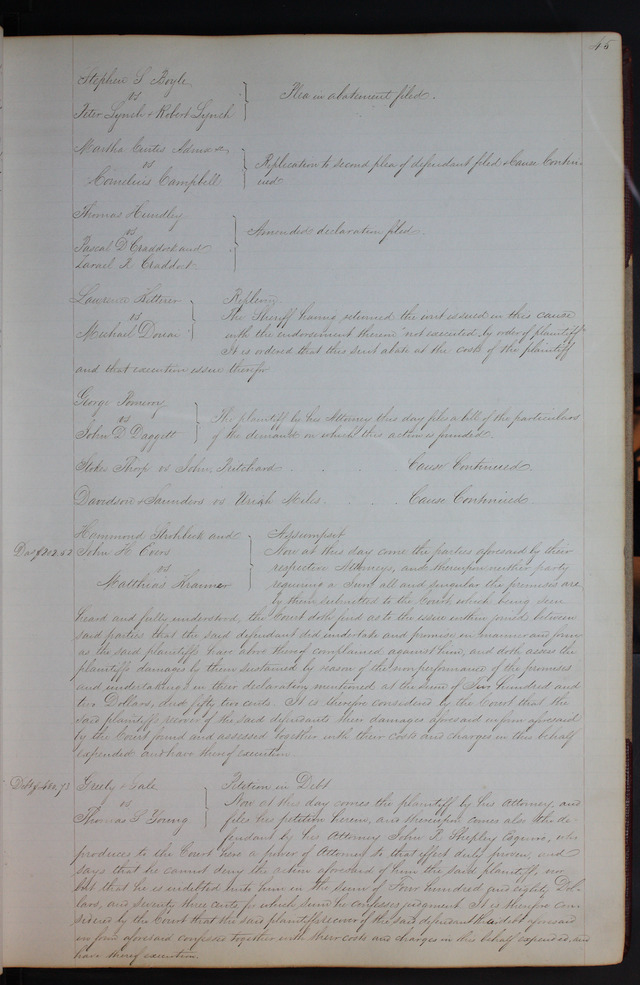 45
Stephen S Boyle
vs
Peter Lynch & Robert Lynch
Plea in abatement filed.
Martha Curtes Admx &c
vs
Cornelius Campbell
Replication to second plea of defendant filed & Cause Contin-
ued
Thomas Hundley
vs
Pascal D Craddock and
Zarael R Craddock
Amended declaration filed.
Lawrence
vs
Michael
Replevin
The Sheriff having returned the writ issued in this cause
with the endorsement thereon "not executed, by order of plaintiff"
It is ordered that this suit abate at the costs of the plaintiff
and that execution issue therefor
George Pomeroy
vs
John D Daggett
The plaintiff by his Attorney this day files a bill of the particulars
of the demand on which this action is founded.
Stokes Thorp vs John Pritchard . . . Cause Continued.
Davidson & Saunders vs Uriah Miles . . . Cause Continued
Dam $202.52
Hammond Strohbeck and
John H Evers
vs
Matthias Kramer
Assumpsit
Now at this day come the parties aforesaid by their
respective Attorneys, and thereupon neither party
requiring a Jury all and singular the premises are
by them submitted to the Court which being seen
heard and fully understood, the Court doth find as to the issue within joined between
said parties that the said defendant did undertake and promise in manner and form
as the said plaintiffs have above thereof complained against him, and doth assess the
plaintiffs damages by them sustained by reason of the nonperformance of the promises
and undertakings in their declaration mentioned at the sum of Two hundred and
two Dollars, and fifty two cents. It is therefore considered by the Court that the
said plaintiffs recover of the said defendants their damages aforesaid in form aforesaid
by the Court found and assessed together with their costs and charges in this behalf
expended and have thereof execution.
Debt $480,73
Greely & Gale
vs
Thomas S Young
Petition in Debt
Now at this day comes the plaintiff by his Attorney, and
files his petition herein, and thereupon comes also the de-
fendant by his Attorney John R Shepley Esquire, who
produces to the Court here a power of Attorney to that effect duly proven, and
says that he cannot deny the action aforesaid of him the said plaintiff, nor
but that he is indebted unto him in the sum of Four hundred and eighty Dol-
lars, and seventy three cents for which sum he confesses judgment. It is therefore con-
sidered by the Court that the said plaintiffs recover of the said defendant the debt aforesaid
in form aforesaid confessed together with their costs and charges in this behalf expended, and
have thereof execution.